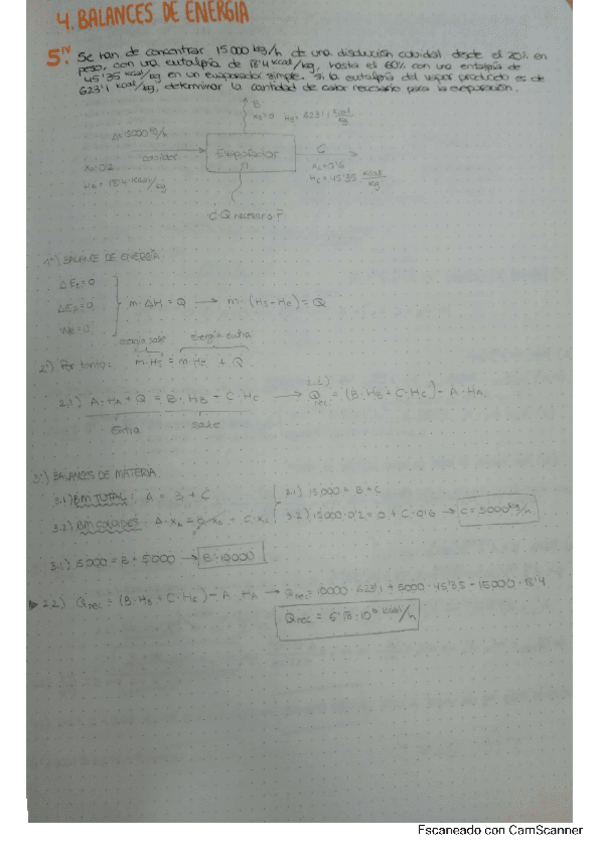 4. BALANCES DE ENERGÍA
5. Se han de concentrar 15000 kg/h de una disolución coloidal desde el 20% en
peso, con una entalpía de 18'4 kcal/kg, hasta el 60% con una entalpía de
45'35 kcal/kg en un evaporador simple. Si la entalpía del vapor producido es de
623'1 kcal/kg, determinar la cantidad de calor necesario para la evaporación.
B
xB=0 HB= 623'1 kcal/kg
A=15000 kg/h
C
Evaporador
xA=0'2
HA= 18'4 kcal/kg
xC=0'6
HC=45'35 kcal/kg
¿Q necesario?
1º) BALANCE DE ENERGÍA
ΔEc=0
ΔEp=0 m·ΔH = Q → m·(Hs-He)=Q
We=0
energía sale energía entra
2º) Por tanto: m·Hs = m·He + Q
2.1) A·HA + Q = B·HB + C·HC → 2.2) Qrec = (B·HB + C·HC) - A·HA
Entra sale
3º) BALANCES DE MATERIA
3.1) BM TOTAL: A = B + C 3.1) 15000 = B + C
3.2) A·xA = B·xB + C·xC 3.2) 15000·0'2 = 0 + C·0'6 → C = 5000 kg/h
3.1) 15000 = B + 5000 → B=10000
2.2) Qrec = (B·HB + C·HC) - A·HA → Qrec = 10000·623'1 + 5000·45'35 - 15000·18'4
Qrec = 6'18·10⁶ kcal/h
Escaneado con CamScanner